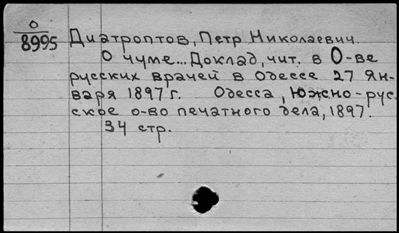 О
8995
Диатроптов, Петр Николаевич.
О чуме... Доклад, чит. в О-ве
русских врачей в Одессе 27 Ян-
варя 1897 г. Одесса, Южно-рус-
ское о-во печатного дела, 1897.
34 стр.